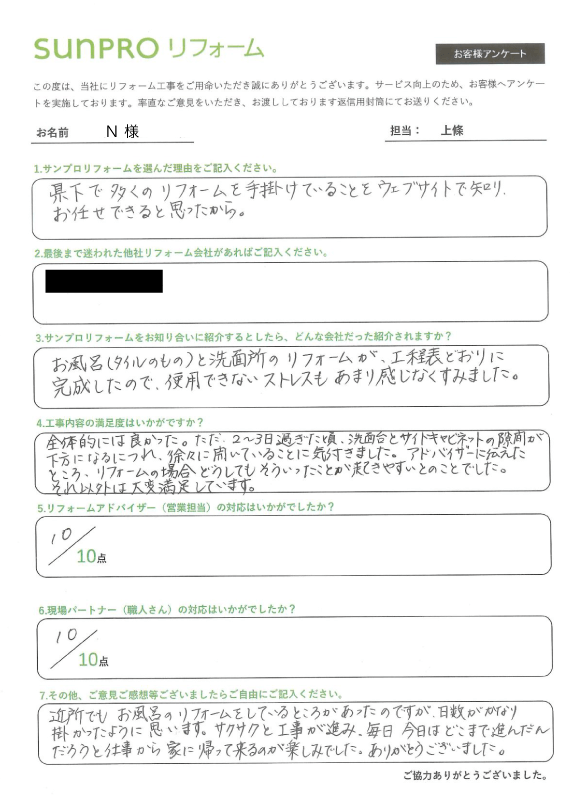 SUNPRO リフォーム
お客様アンケート
この度は、当社にリフォーム工事をご用命いただき誠にありがとうございます。サービス向上のため、お客様へアンケー
トを実施しております。率直なご意見をいただき、お渡ししております返信用封筒にてお送りください。
お名前 N 様 担当： 上條
1.サンプロリフォームを選んだ理由をご記入ください。
県下で多くのリフォームを手掛けていることをウェブサイトで知り、
お任せできると思ったから。
2.最後まで迷われた他社リフォーム会社があればご記入ください。
3.サンプロリフォームをお知り合いに紹介するとしたら、どんな会社だった紹介されますか？
お風呂(タイルのもの)と洗面所のリフォームが、工程表どおりに
完成したので、使用できないストレスもあまり感じなくすみました。
4.工事内容の満足度はいかがですか？
全体的には良かった。ただ、2〜3日過ぎた頃、洗面台とサイドキャビネットの隙間が
下方になるにつれ、徐々に開いていることに気付きました。アドバイザーに伝えた
ところ、リフォームの場合、どうしてもそういったことが起きやすいとのことでした。
それ以外は大変満足しています。
5.リフォームアドバイザー（営業担当）の対応はいかがでしたか？
10
10点
6.現場パートナー（職人さん）の対応はいかがでしたか？
10
10点
7.その他、ご意見ご感想等ございましたらご自由にご記入ください。
近所でもお風呂のリフォームをしているところがあったのですが、日数がかなり
掛かったように思います。サクサクと工事が進み、毎日今日はどこまで進んだん
だろうと仕事から家に帰って来るのが楽しみでした。ありがとうございました。
ご協力ありがとうございました。